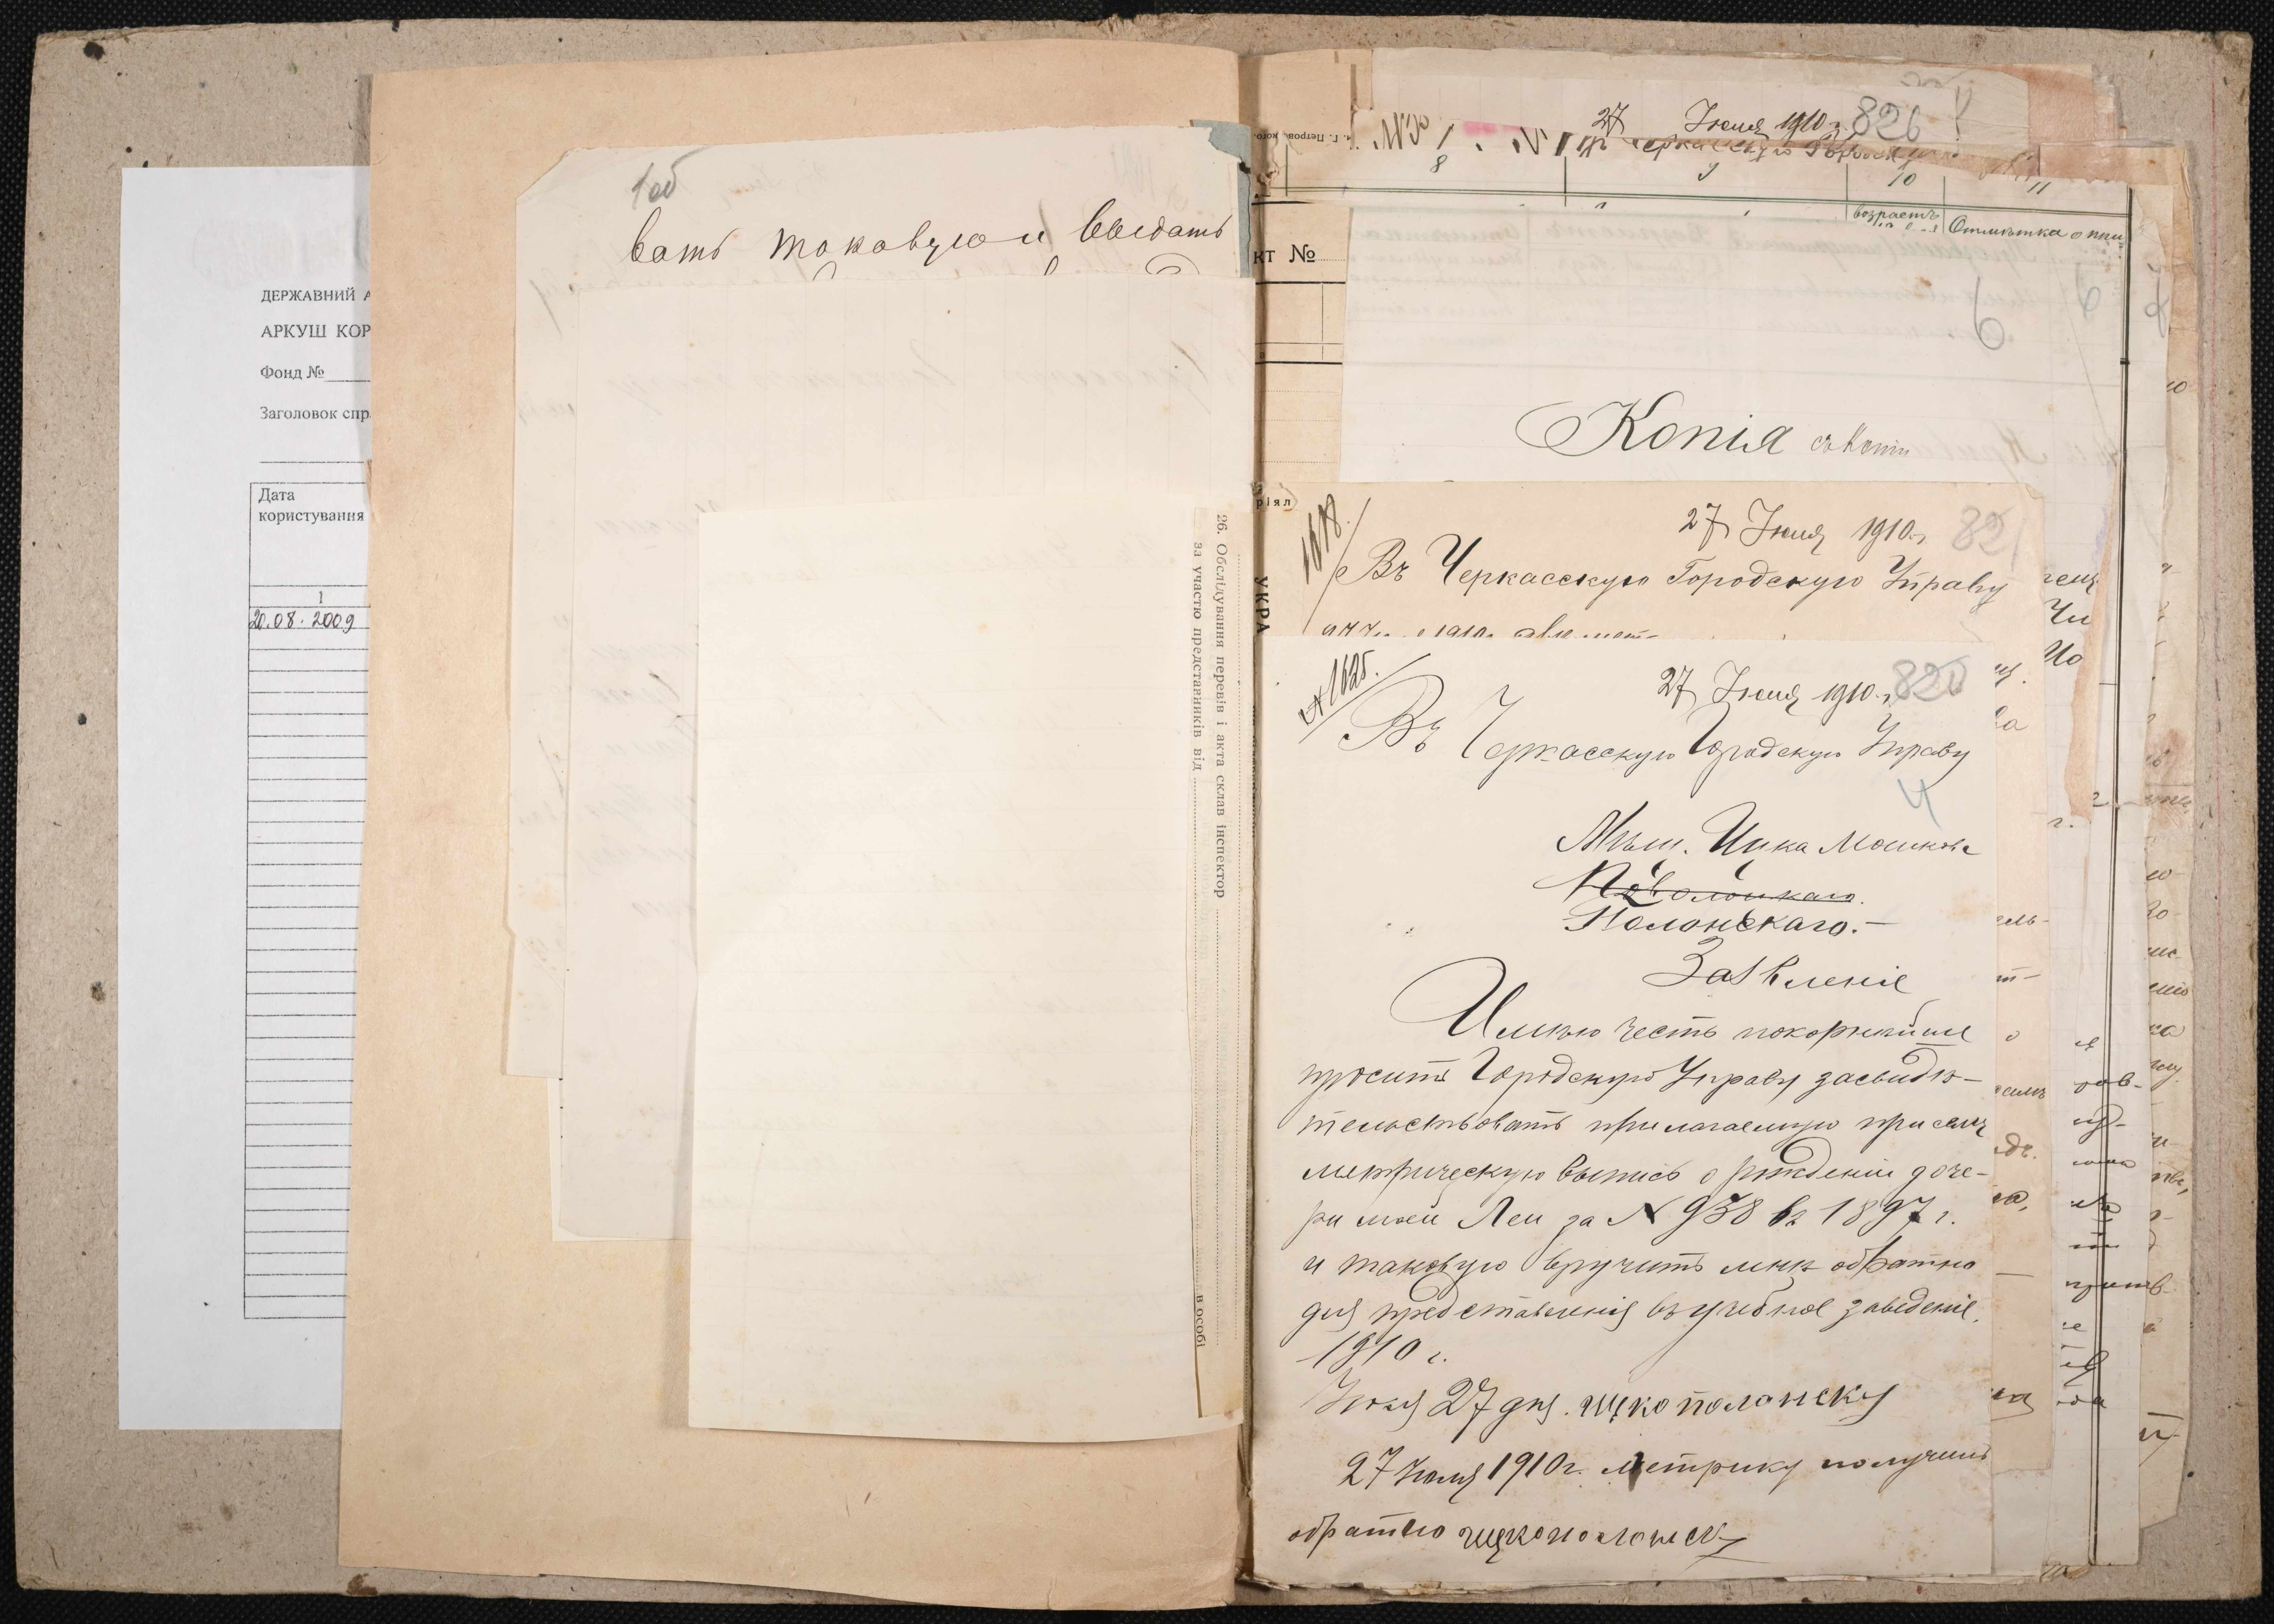 ДЕРЖАВНИЙ А
АРКУШ КОР
Фонд №
Заголовок спр
Дата
користування
1
20.08.2009
1об
вать таковую и выдать
26. Обслідування перевів і акта склав інспектор
за участю представників від
в особі
27 Іюля 1910 г. 826
8
9
10
11
возрастъ
Отмѣтка о
кт №
6
6
Копія
ріял
УКРА
1618.
27 Іюля 1910 г. 821
Въ Черкасскую Городскую Управу
№ 1625.
27 Іюля 1910 г. 820
Въ Черкасскую Городскую Управу
4
Мѣщ. Ицка Мошкова
Поволоцкаго.
Полонскаго.—
Заявленіе
Имѣю честь покорнѣйше
просить Городскую Управу засвидѣ-
тельствовать прилагаемую при семъ
метрическую выпись о рожденіи доче-
ри моей Леи за № 938 въ 1897 г.
и таковую вручить мнѣ обратно
для представленія въ учебное заведеніе.
1910 г.
Іюля 27 дня. ицко полонску
27 Іюля 1910 г. метрику получилъ
обратно ицко полонску